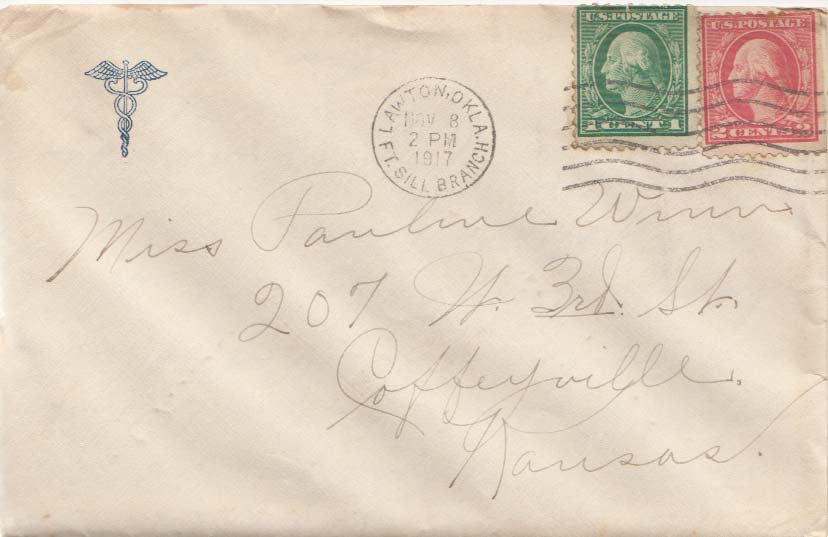 U.S. POSTAGE
1 CENT 1
U.S. POSTAGE
2 CENTS
LAWTON, OKLA.
NOV 8
2 PM
1917
FT. SILL BRANCH
Miss Pauline Winn
207 W. 3rd. St.
Coffeyville.
Kansas.